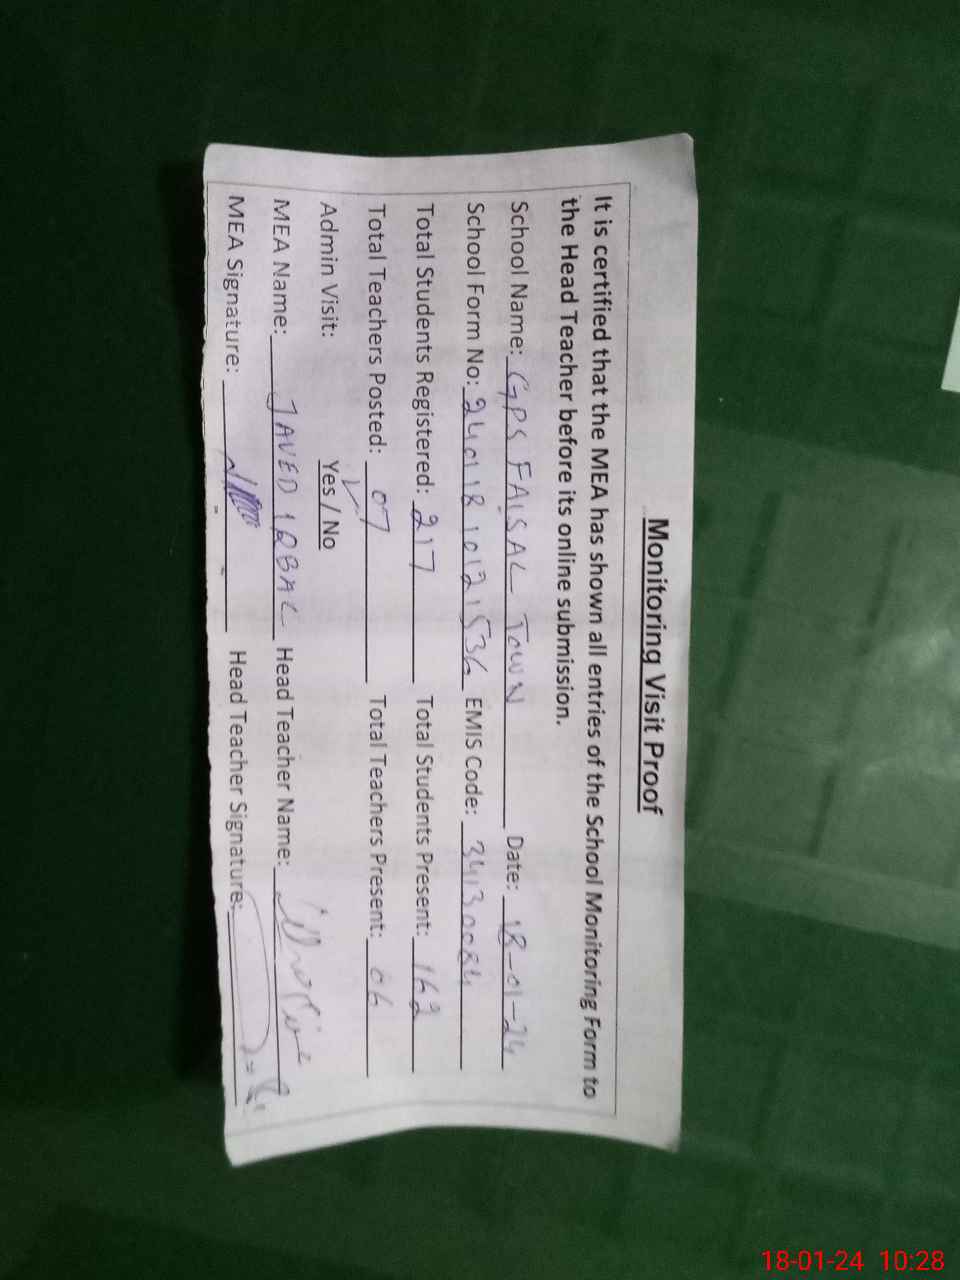 Monitoring Visit Proof
It is certified that the MEA has shown all entries of the School Monitoring Form to
the Head Teacher before its online submission.
School Name: GPS FAISAL TOWN Date: 18-01-24
School Form No: 24011810121536 EMIS Code: 34130084
Total Students Registered: 217 Total Students Present: 162
Total Teachers Posted: 07 Total Teachers Present: 06
Admin Visit: Yes / No
MEA Name: JAVED IQBAL Head Teacher Name:
MEA Signature: Head Teacher Signature:
18-01-24 10:28